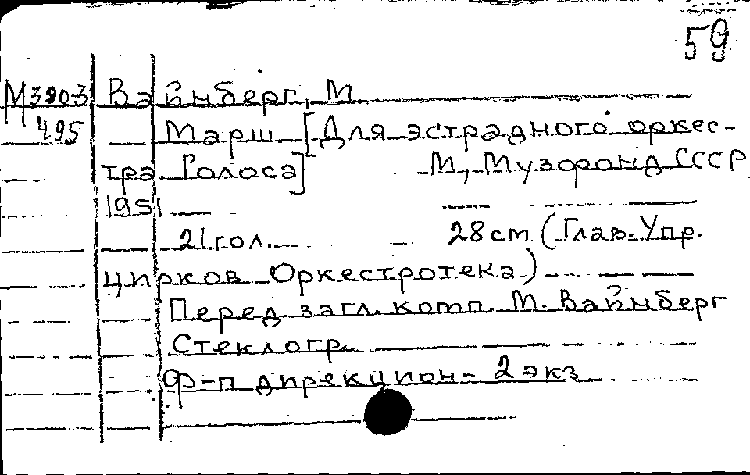 59
М3903 Вайнберг, М
495 Марш [Для эстрадного оркес-
тра Голоса] М, Музфонд СССР
1951
21гол. 28cm (Глав. Упр.
цирков Оркестротека)
Перед загл. комп. М. Вайнберг
Стеклогр.
Ф-п дирекцион- 2 экз